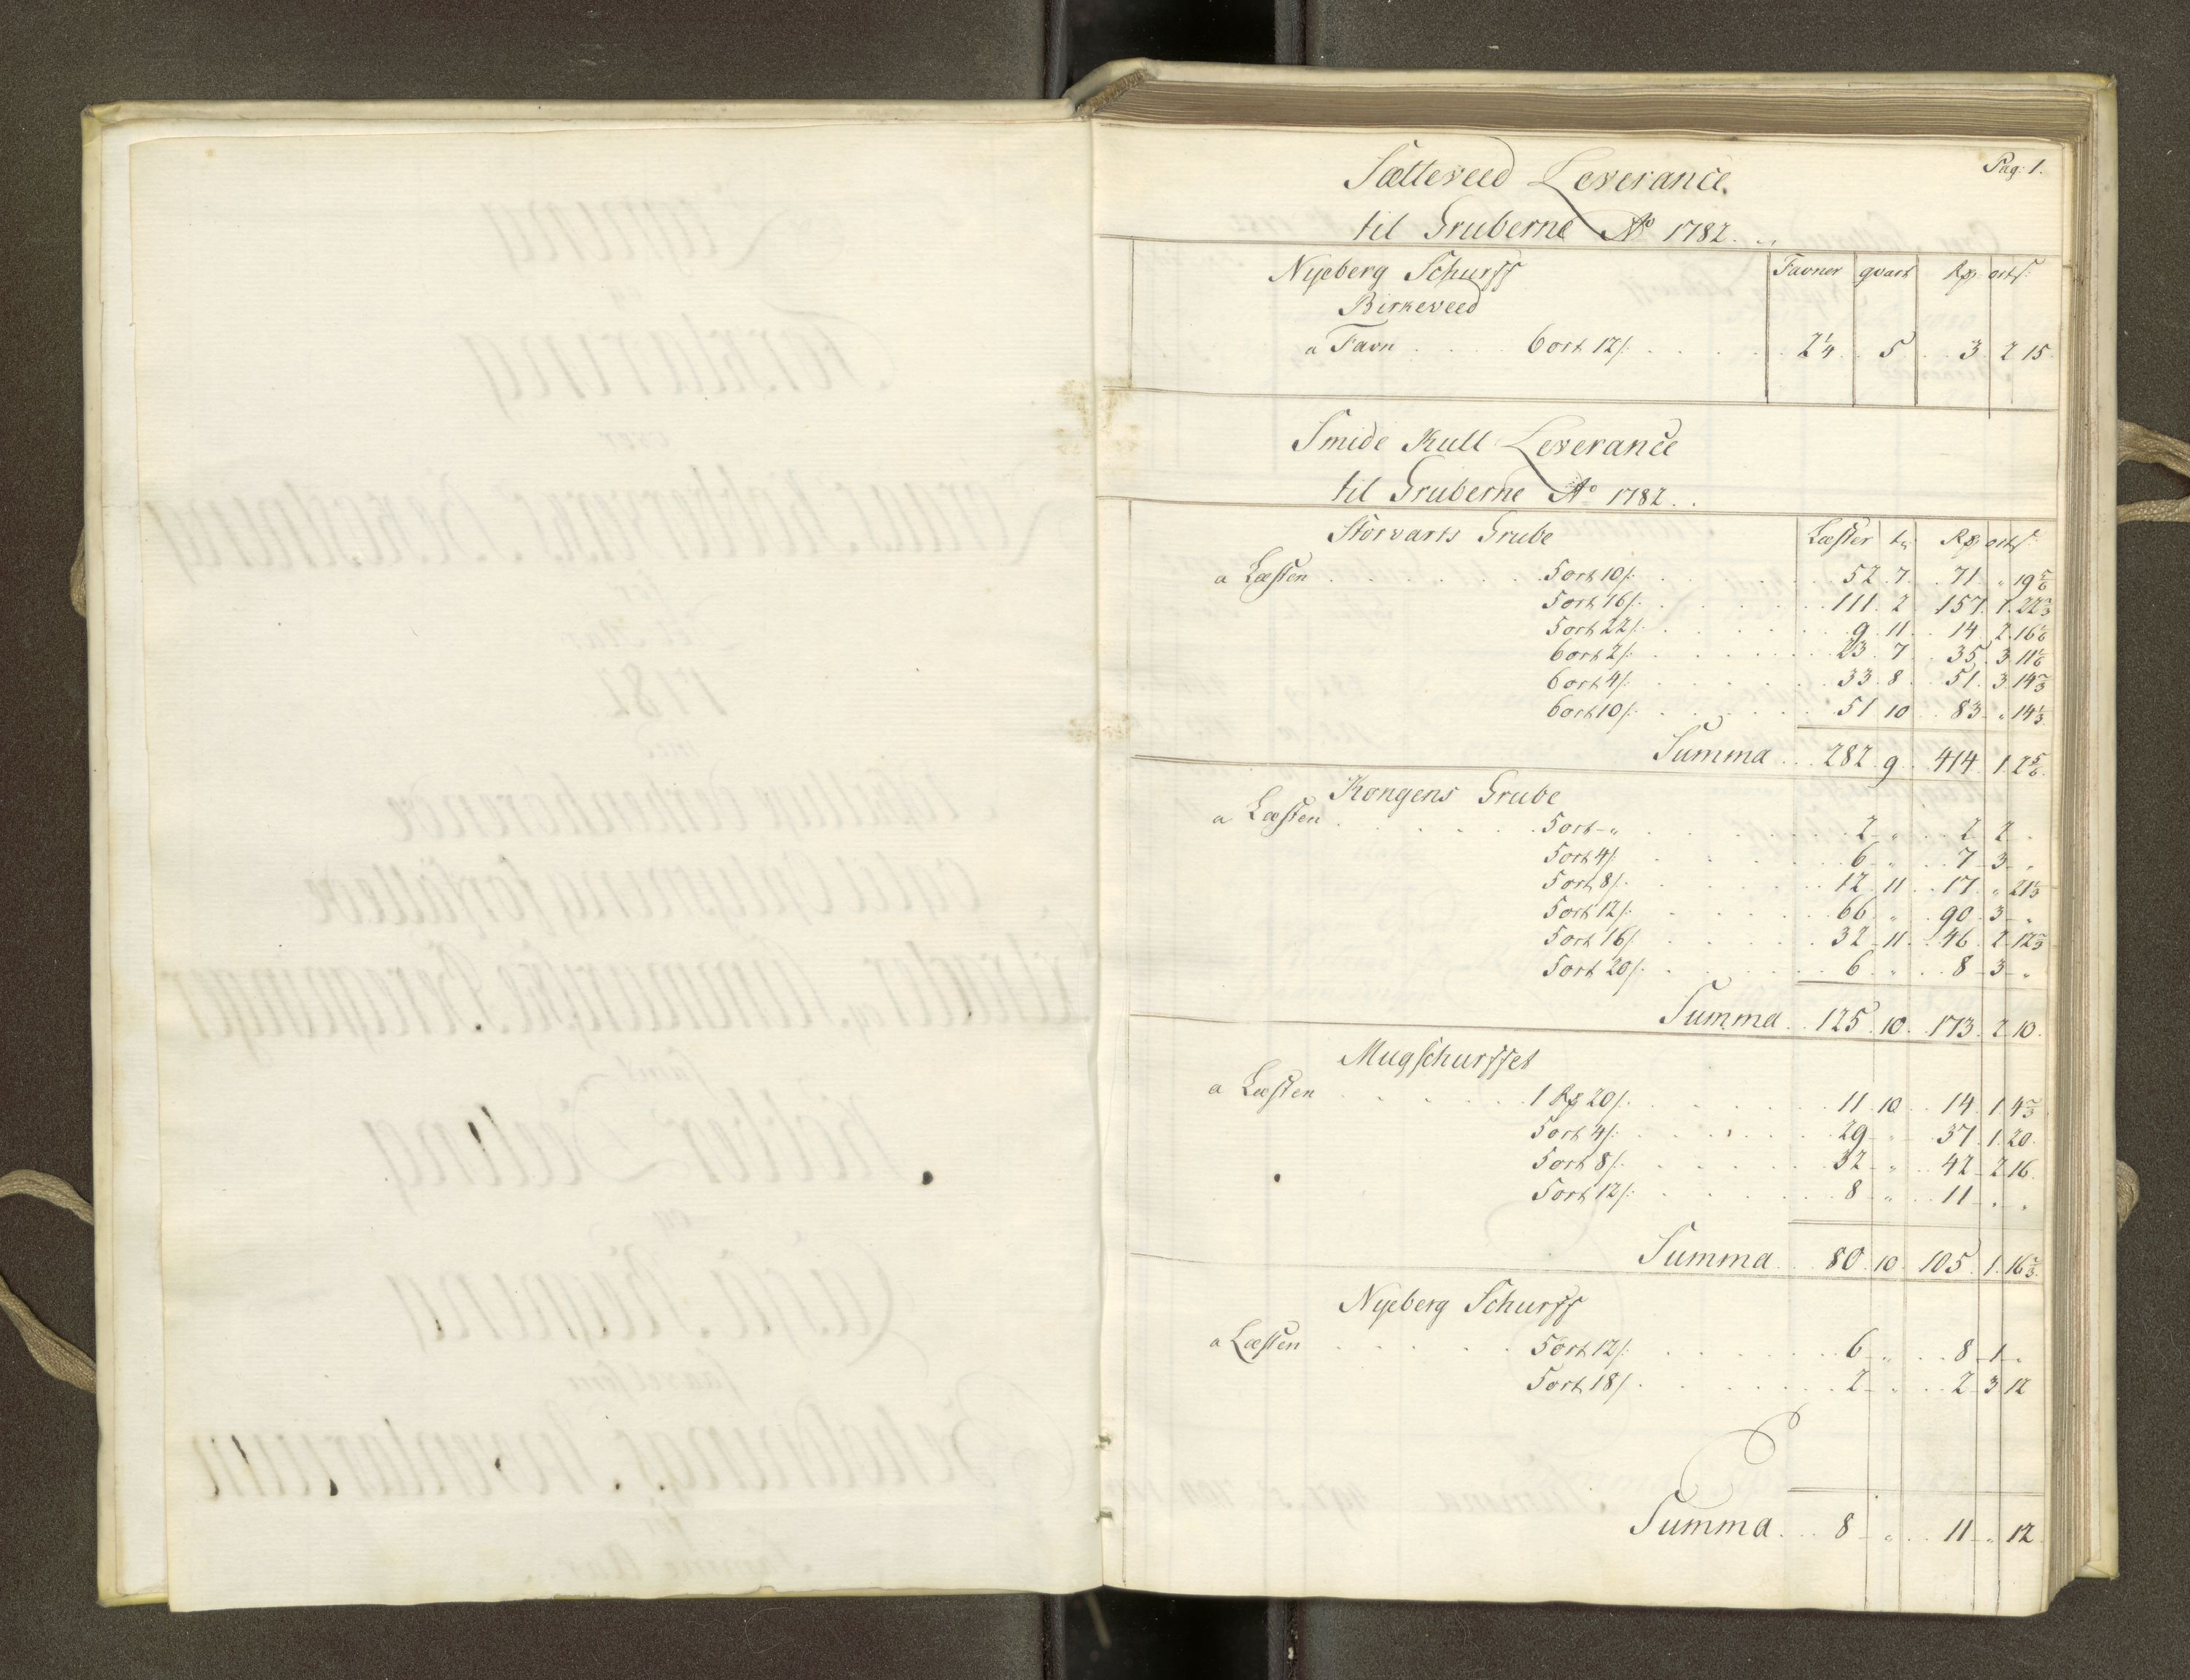 Pag: 1.
Sætteveed Leverance
til Gruberne Aº 1782.
Nyeberg Schurff Favner qvart Rd ort s:
Birkeveed
a Favn 6 ort 12 s: 2 1/4 5 3 2 15
Smide Kull Leverance
til Gruberne Aº 1782.
Storvarts Grube Læster tr Rd ort s:
a Læsten 5 ort 10 s: 52 7 71 " 19 5/6
5 ort 16 s: 111 2 157 1 22 2/3
5 ort 22 s: 9 11 14 2 16 1/6
6 ort 2 s: 23 7 35 3 11 1/6
6 ort 4 s: 33 8 51 3 14 2/3
6 ort 10 s: 51 10 83 " 14 1/3
Summa 282 9 414 1 2 5/6
Kongens Grube
a Læsten 5 ort " 2 " 2 2 "
5 ort 4 s: 6 " 7 3 "
5 ort 8 s: 12 11 17 " 21 1/3
5 ort 12 s: 66 " 90 3 "
5 ort 16 s: 32 11 46 2 12 2/3
5 ort 20 s: 6 " 8 3 "
Summa 125 10 173 2 10
Mugschurffet
a Læsten 1 Rd 20 s: 11 10 14 1 4 2/3
5 ort 4 s: 29 " 37 1 20
5 ort 8 s: 32 " 42 2 16
5 ort 12 s: 8 " 11 " "
Summa 80 10 105 1 16 2/3
Nyeberg Schurff
a Læsten 5 ort 12 s: 6 " 8 1 "
5 ort 18 s: 2 " 2 3 12
Summa 8 " 11 " 12